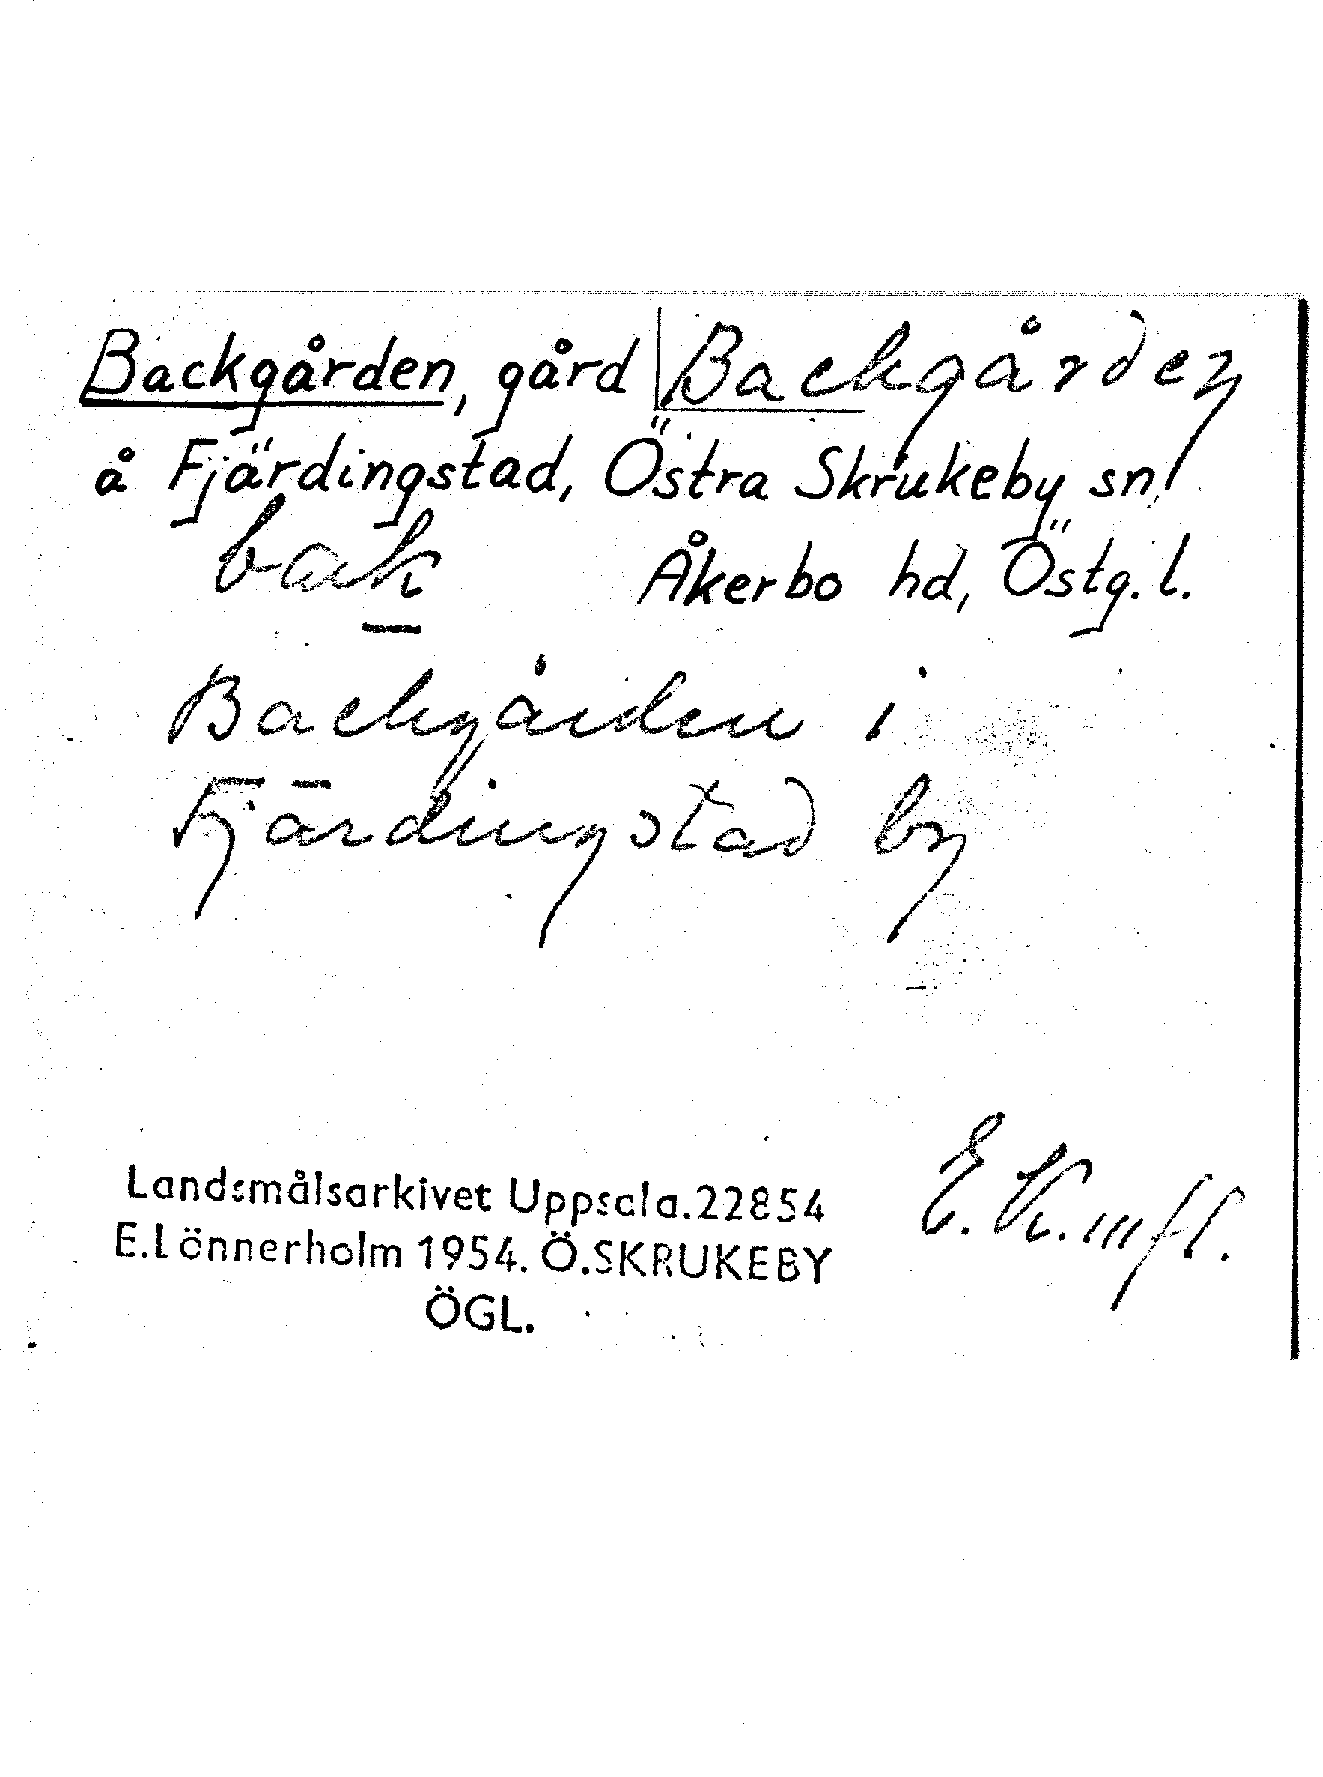 Backgården, gård Backgården
å Fjärdingstad, Östra Skrukeby sn,
bak Åkerbo hd, Östg. l.
Backgården i
Fjärdingstad by
E. K. m fl.
Landsmålsarkivet Uppsala.22854
E.Lönnerholm 1954. Ö.SKRUKEBY
ÖGL.